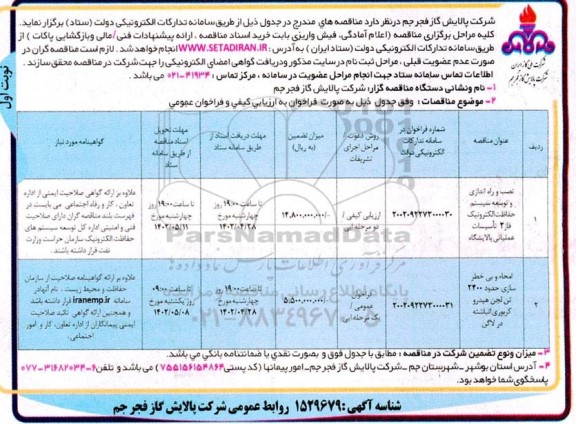 شرکت پالایش گاز فجر جم درنظر دارد مناقصه های مندرج در جدول ذیل از طریق سامانه تدارکات الکترونیکی دولت (ستاد) برگزار نماید.
کلیه مراحل برگزاری مناقصه (اعلام آمادگی، فیش واریزی بابت خرید اسناد مناقصه ، ارائه پیشنهادات فنی/مالی و بازگشایی پاکات) از
طریق سامانه تدارکات الکترونیکی دولت (ستاد ایران) به آدرس : WWW.SETADIRAN.IR انجام خواهد شد . لازم است مناقصه گران در
صورت عدم عضویت قبلی ، مراحل ثبت نام در سایت مذکور و دریافت گواهی امضای الکترونیکی را جهت شرکت در مناقصه محقق سازند .
اطلاعات تماس سامانه ستاد جهت انجام مراحل عضویت در سامانه ، مرکز تماس : ۴۱۹۳۴-۰۲۱ می باشد .
۱- نام ونشانی دستگاه مناقصه گزار: شرکت پالایش گاز فجر جم
۲- موضوع مناقصات : وفق جدول ذیل به صورت فراخوان به ارزیابی کیفی و فراخوان عمومی
نوبت اول
شرکت ملی گاز ایران
شرکت پالایش گاز فجر جم
ردیف
عنوان مناقصه
شماره فراخوان در سامانه تدارکات الکترونیکی دولت
روش دعوت / مراحل اجرای تشریفات
میزان تضمین (به ریال)
مهلت دریافت اسناد از طریق سامانه ستاد
مهلت تحویل اسناد مناقصه از طریق سامانه ستاد
گواهینامه مورد نیاز
۱
نصب و راه اندازی و توسعه سیستم حفاظت الکترونیک فاز ۲ تأسیسات عملیاتی پالایشگاه
۲۰۰۲۰۹۲۲۷۳۰۰۰۰۳۰
ارزیابی کیفی / دو مرحله ایی
۱۴,۸۰۰,۰۰۰,۰۰۰/-
تا ساعت ۱۹:۰۰ روز چهارشنبه مورخ ۱۴۰۲/۰۴/۲۸
تا ساعت ۱۹:۰۰ روز چهارشنبه مورخ ۱۴۰۲/۰۵/۱۱
علاوه بر ارائه گواهی صلاحیت ایمنی از اداره تعاون ، کار و رفاه اجتماعی می بایست در فهرست بلند مناقصه گران دارای صلاحیت فنی و امنیتی اداره کل توسعه سیستم های حفاظت الکترونیک سازمان حراست وزارت نفت قرار داشته باشد .
۲
امحاء و بی خطر سازی حدود ۲۴۰۰ تن لجن هیدرو کربوری انباشته در لاگن
۲۰۰۲۰۹۲۲۷۳۰۰۰۰۳۱
فراخوان عمومی / یک مرحله ایی
۵,۵۰۰,۰۰۰,۰۰۰/-
تا ساعت ۱۹:۰۰ روز چهارشنبه مورخ ۱۴۰۲/۰۴/۲۸
تا ساعت ۰۹:۰۰ روز یکشنبه مورخ ۱۴۰۲/۰۵/۰۸
علاوه بر ارائه گواهینامه صلاحیت از سازمان حفاظت و محیط زیست ، نام آنها در سامانه iranemp.ir قرار داشته باشد و همچنین ارائه گواهی تائید صلاحیت ایمنی پیمانکاران از اداره تعاون، کار و امور اجتماعی.
ParsNamadData
۳- میزان ونوع تضمین شرکت در مناقصه : مطابق با جدول فوق و بصورت نقدی یا ضمانتنامه بانکی می باشد.
۴- آدرس استان بوشهر _شهرستان جم _شرکت پالایش گاز فجر جم_امور پیمانها (کد پستی ۷۵۵۱۵۶۱۵۴۸۶۴) می باشد و تلفن ۶-۳۱۶۸۲۰۳۴-۰۷۷
پاسخگوی شما خواهد بود.
شناسه آگهی : ۱۵۲۹۶۷۹ روابط عمومی شرکت پالایش گاز فجر جم